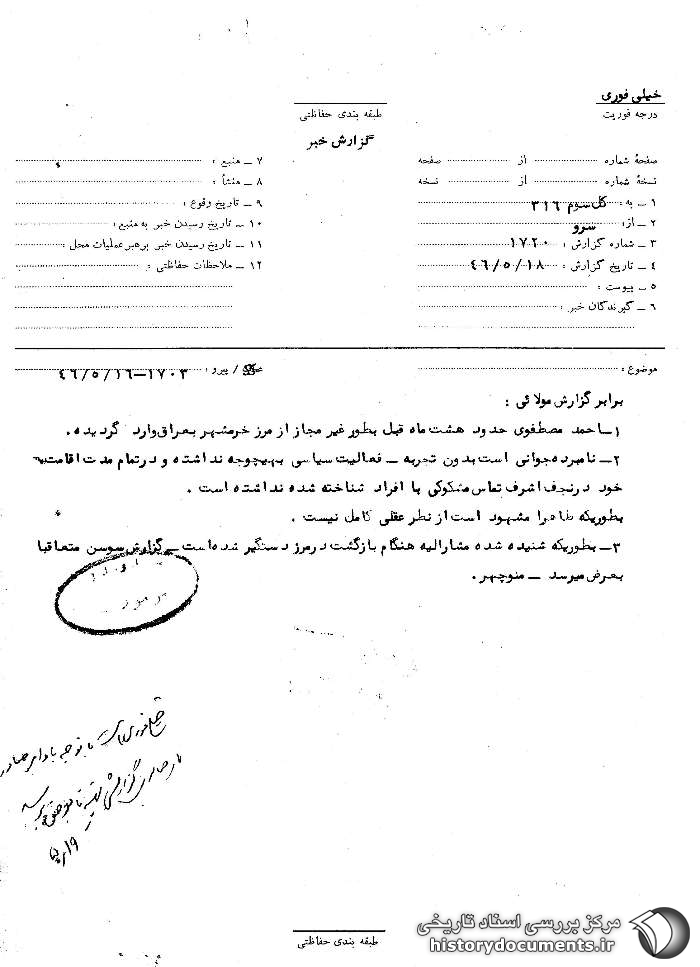 خیلی فوری
درجه فوریت
طبقه بندی حفاظتی
گزارش خبر
صفحهٔ شماره از صفحه
نسخهٔ شماره از نسخه
۱ ـ به: کل سوم ۳۱۶
۲ ـ از: سرو
۳ ـ شماره گزارش : ۱۷۲۰
۴ ـ تاریخ گزارش : ۴۶/۵/۱۸
۵ ـ پیوست :
۶ ـ گیرندگان خبر :
۷ ـ منبع :
۸ ـ منشأ :
۹ ـ تاریخ وقوع :
۱۰ ـ تاریخ رسیدن خبر به منبع :
۱۱ ـ تاریخ رسیدن خبر برهبر عملیات محل :
۱۲ ـ ملاحظات حفاظتی :
موضوع :
/ پیرو : ۱۷۰۳–۴۶/۵/۱۶
برابر گزارش مولائی :
۱ـ احمد مصطفوی حدود هشت ماه قبل بطور غیر مجاز از مرز خرمشهر بعراق وارد گردیده .
۲ـ نامبرده جوانی است بدون تجربه ـ فعالیت سیاسی بهیچوجه نداشته و در تمام مدت اقامت
خود درنجف اشرف تماس مشکوکی با افراد شناخته شده نداشته است .
بطوریکه ظاهرا مشهود است از نظر عقلی کامل نیست .
۳ـ بطوریکه شنیده شده مشارالیه هنگام بازگشت در مرز دستگیر شده است ـ گزارش سوسن متعاقبا
بعرض میرسد ـ منوچهر .
طبقه بندی حفاظتی
مرکز بررسی اسناد تاریخی
historydocuments.ir